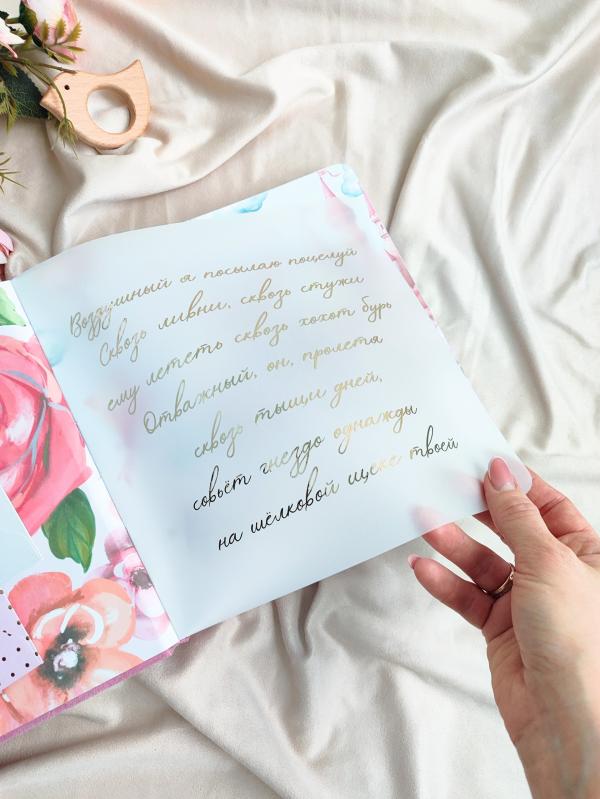 Воздушный я посылаю поцелуй
Сквозь ливни, сквозь стужи
ему лететь сквозь хохот бурь
Отважный, он, пролетя
сквозь тыщи дней,
совьёт гнездо однажды
на шёлковой щеке твоей